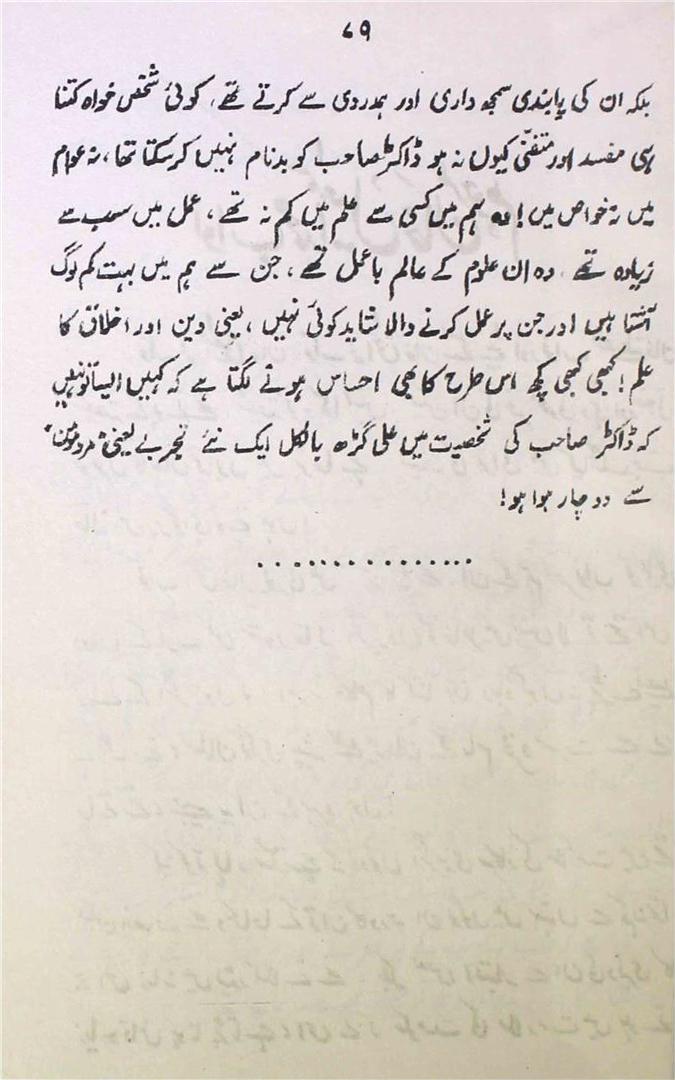 ۷۹
بلکہ ان کی پابندی سمجھ داری اور ہمدردی سے کرتے تھے، کوئی شخص خواہ کتنا
ہی مفسد اور متفنّی کیوں نہ ہو ڈاکٹر صاحب کو بدنام نہیں کر سکتا تھا، نہ عوام
میں نہ خواص میں! وہ ہم میں کسی سے علم میں کم نہ تھے، عمل میں سب سے
زیادہ تھے، وہ ان علوم کے عالم باعمل تھے، جن سے ہم میں بہت کم لوگ
آشنا ہیں اور جن پر عمل کرنے والا شاید کوئی نہیں، یعنی دین اور اخلاق کا
علم! کبھی کبھی کچھ اس طرح کا بھی احساس ہونے لگتا ہے کہ کہیں ایسا تو نہیں
کہ ڈاکٹر صاحب کی شخصیت میں علی گڑھ بالکل ایک نئے تجربے یعنی "مرد مومن"
سے دوچار ہوا ہو!